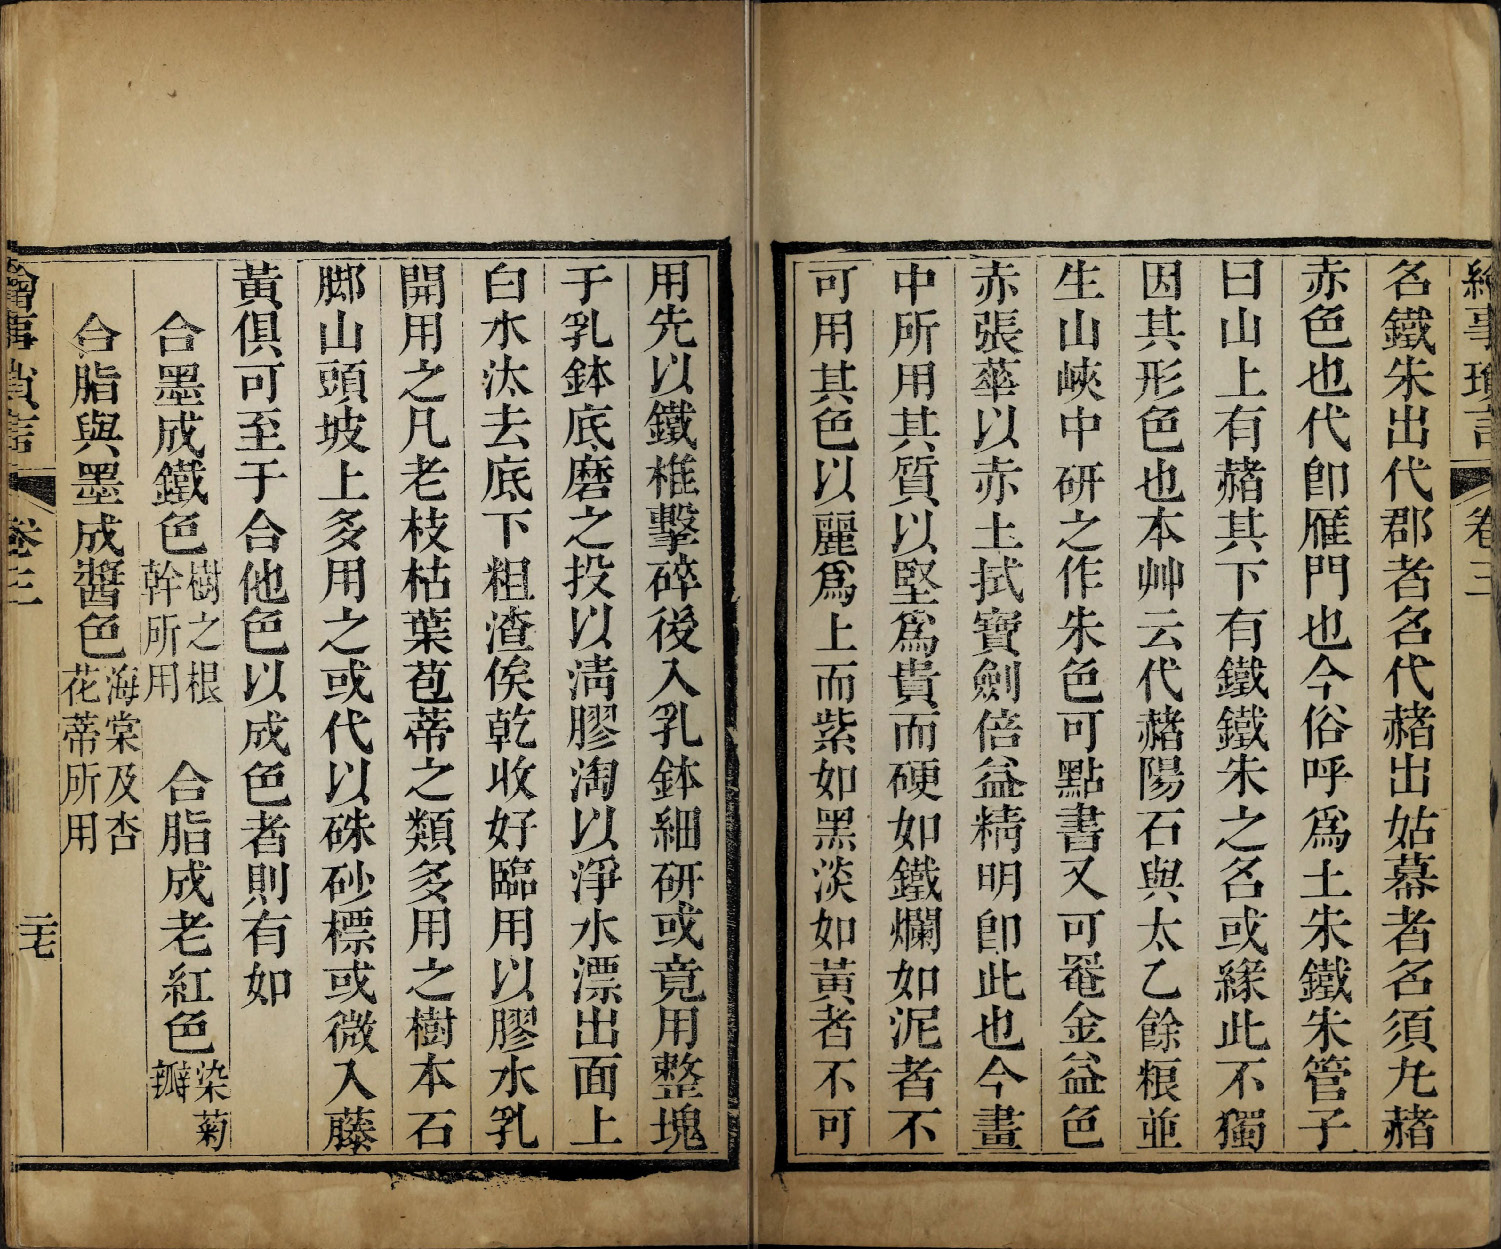 繪事瑣言 卷三
名鐵朱出代郡者名代赭出姑幕者名須丸赭
赤色也代卽雁門也今俗呼爲土朱鐵朱管子
曰山上有赭其下有鐵鐵朱之名或緣此不獨
因其形色也本艸云代赭陽石與太乙餘粮並
生山峽中研之作朱色可點書又可罨金益色
赤張華以赤土拭寶劍倍益精明卽此也今畫
中所用其質以堅爲貴而硬如鐵爛如泥者不
可用其色以麗爲上而紫如黑淡如黃者不可
用先以鐵椎擊碎後入乳鉢細研或竟用整塊
于乳鉢底磨之投以淸膠淘以淨水漂出面上
白水汰去底下粗渣俟乾收好臨用以膠水乳
開用之凡老枝枯葉苞蒂之類多用之樹本石
脚山頭坡上多用之或代以硃砂標或微入藤
黃俱可至于合他色以成色者則有如
合墨成鐵色樹之根幹所用 合脂成老紅色染菊瓣
合脂與墨成醬色海棠及杏花蒂所用
繪事瑣言 卷三 二七